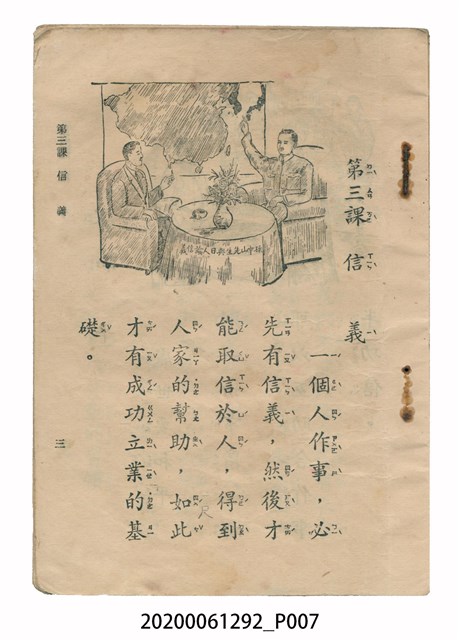 第三課 信義
孫中山先生與日人論信義
一個人作事，必
先有信義，然後才
能取信於人，得到
人家的幫助，如此
才有成功立業的基
礎。
第三課 信義
三
20200061292_P007